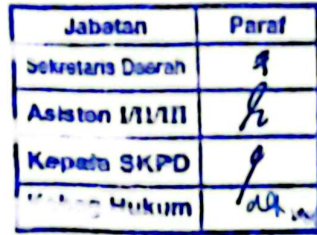 Jabatan Paraf
Sekretaris Daerah
Asisten I/II/III
Kepala SKPD
Hukum